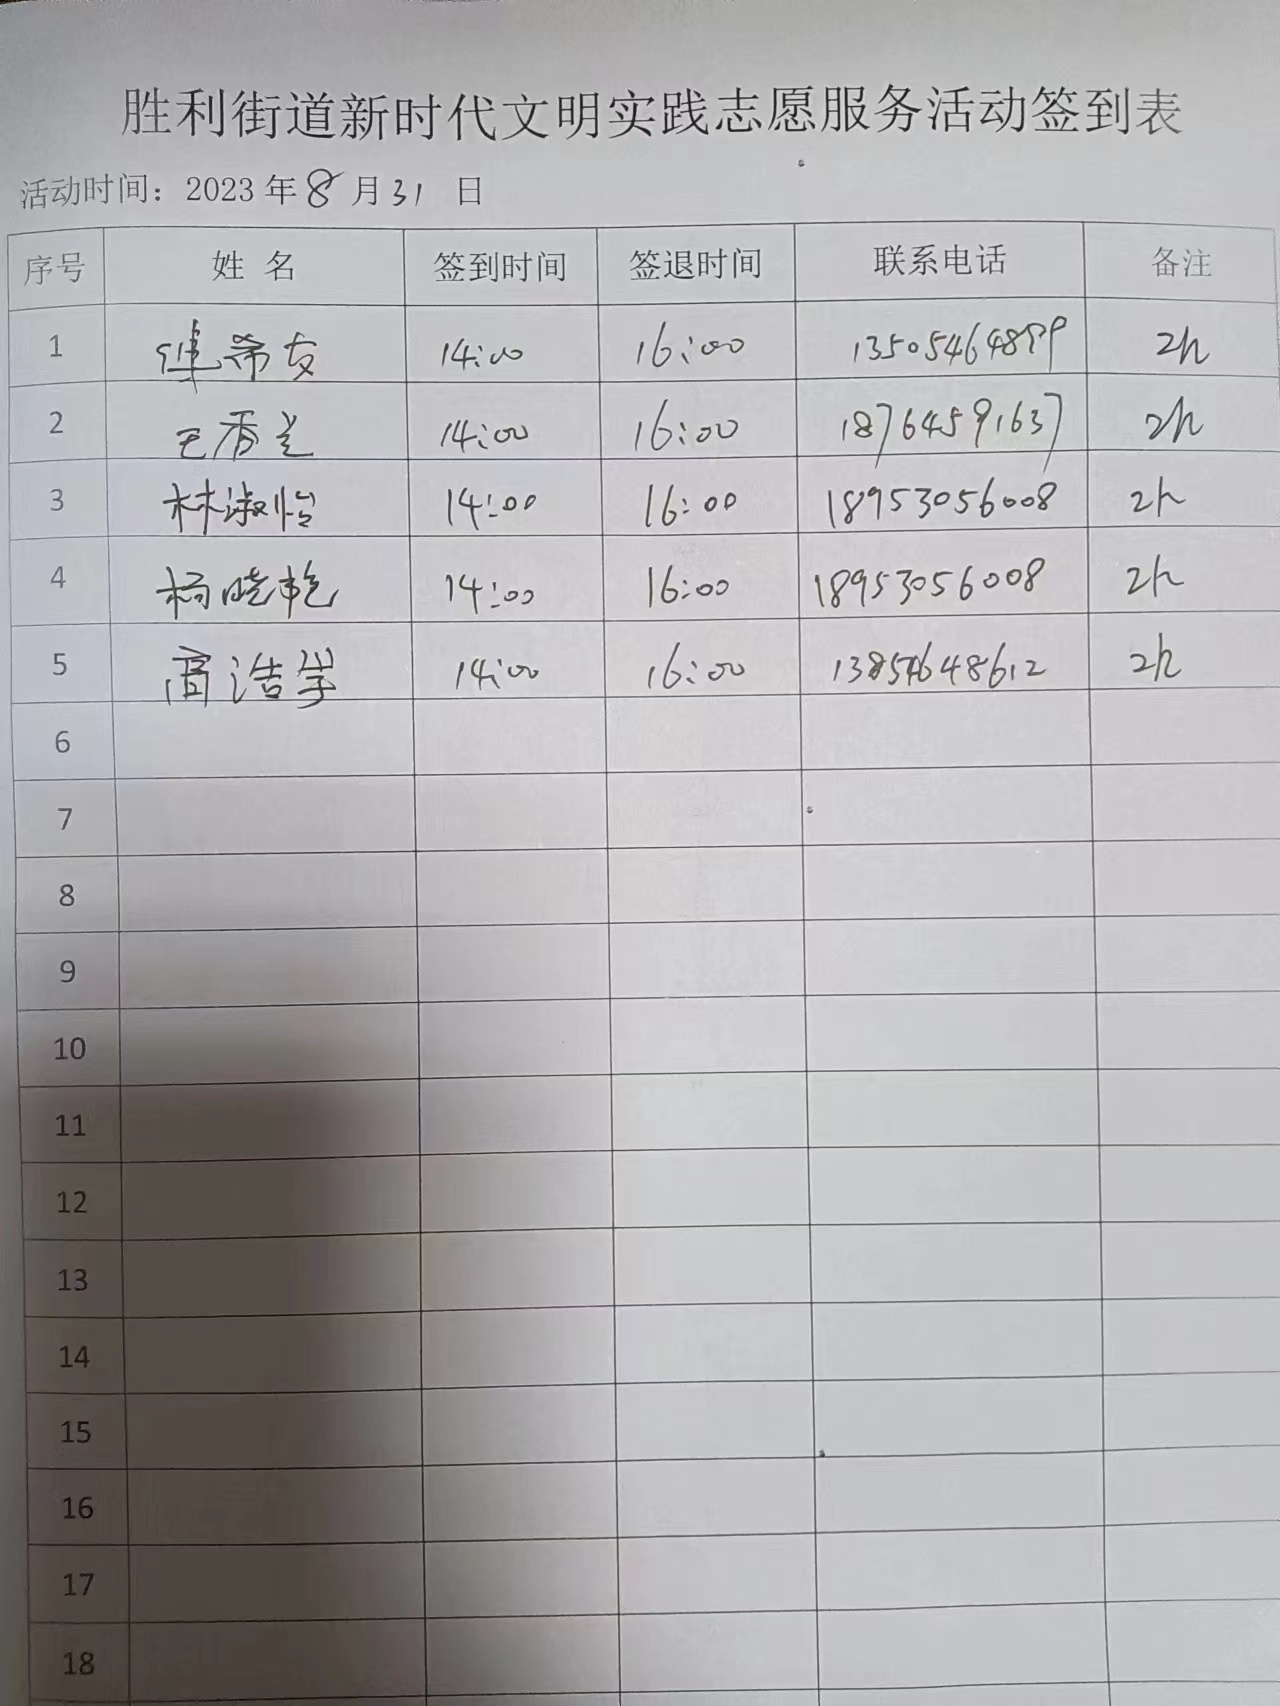 胜利街道新时代文明实践志愿服务活动签到表
活动时间：2023 年 8 月 31 日
序号 姓 名 签到时间 签退时间 联系电话 备注
1 14:00 16:00 13505464899 2h
2 王香兰 14:00 16:00 18764591637 2h
3 林淑怡 14:00 16:00 18953056008 2h
4 杨晓艳 14:00 16:00 18953056008 2h
5 高浩学 14:00 16:00 13854648612 2h
6
7
8
9
10
11
12
13
14
15
16
17
18